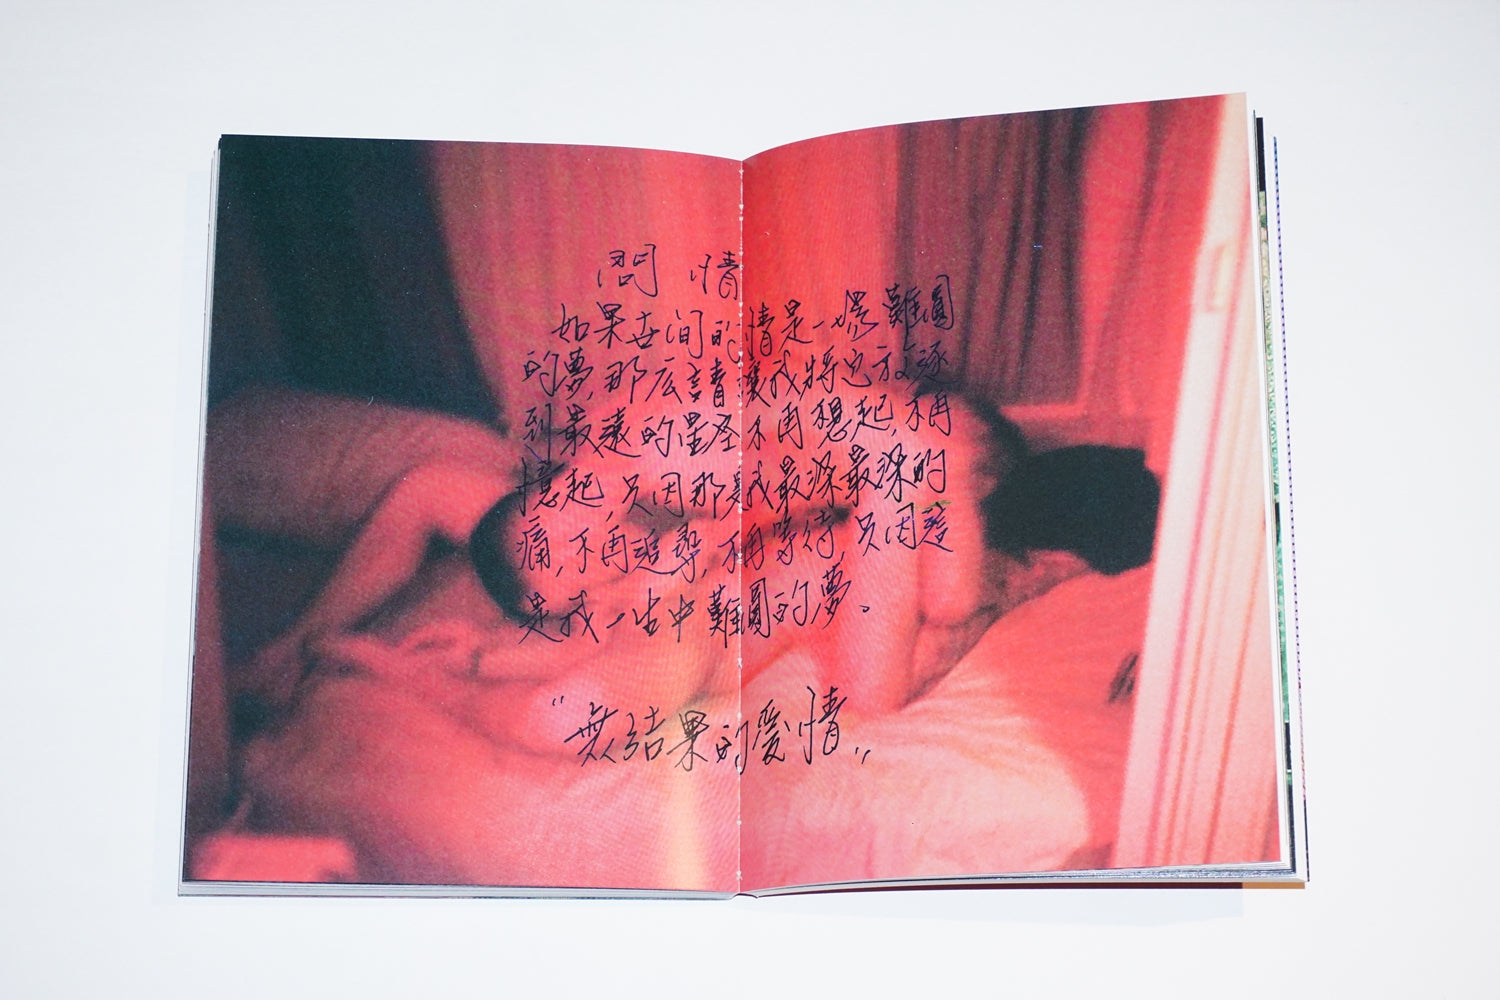 問情
如果世间的情是一場難圓
的夢,那么請讓我將它放逐
到最遠的星空不再想起,不再
憶起,只因那是我最深最深的
痛,不再追尋,不再等待,只因這
是我一生中難圓的夢。
“無結果的愛情”